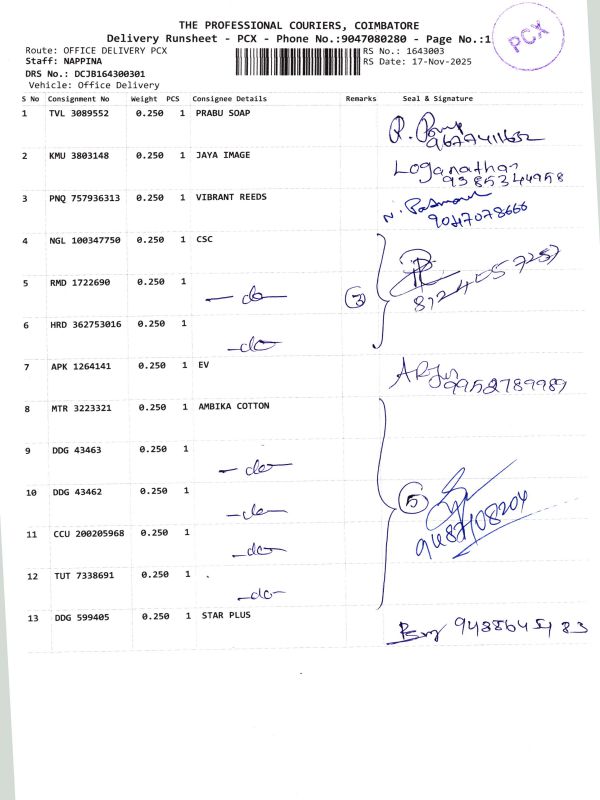 THE PROFESSIONAL COURIERS, COIMBATORE
Delivery Runsheet - PCX - Phone No.:9047080280 - Page No.:1
PCX
Route: OFFICE DELIVERY PCX
RS No.: 1643003
Staff: NAPPINA
RS Date: 17-Nov-2025
DRS No.: DCJB164300301
Vehicle: Office Delivery
S No Consignment No Weight PCS Consignee Details Remarks Seal & Signature
1 TVL 3089552 0.250 1 PRABU SOAP
2 KMU 3803148 0.250 1 JAYA IMAGE Loganathan
9385344958
3 PNQ 757936313 0.250 1 VIBRANT REEDS
9047078666
4 NGL 100347750 0.250 1 CSC
5 RMD 1722690 0.250 1 - do - 3 8124057257
6 HRD 362753016 0.250 1 - do -
7 APK 1264141 0.250 1 EV ARJun
9952789989
8 MTR 3223321 0.250 1 AMBIKA COTTON
9 DDG 43463 0.250 1 - do -
10 DDG 43462 0.250 1 - do - 5
11 CCU 200205968 0.250 1 - do -
12 TUT 7338691 0.250 1 - do -
13 DDG 599405 0.250 1 STAR PLUS